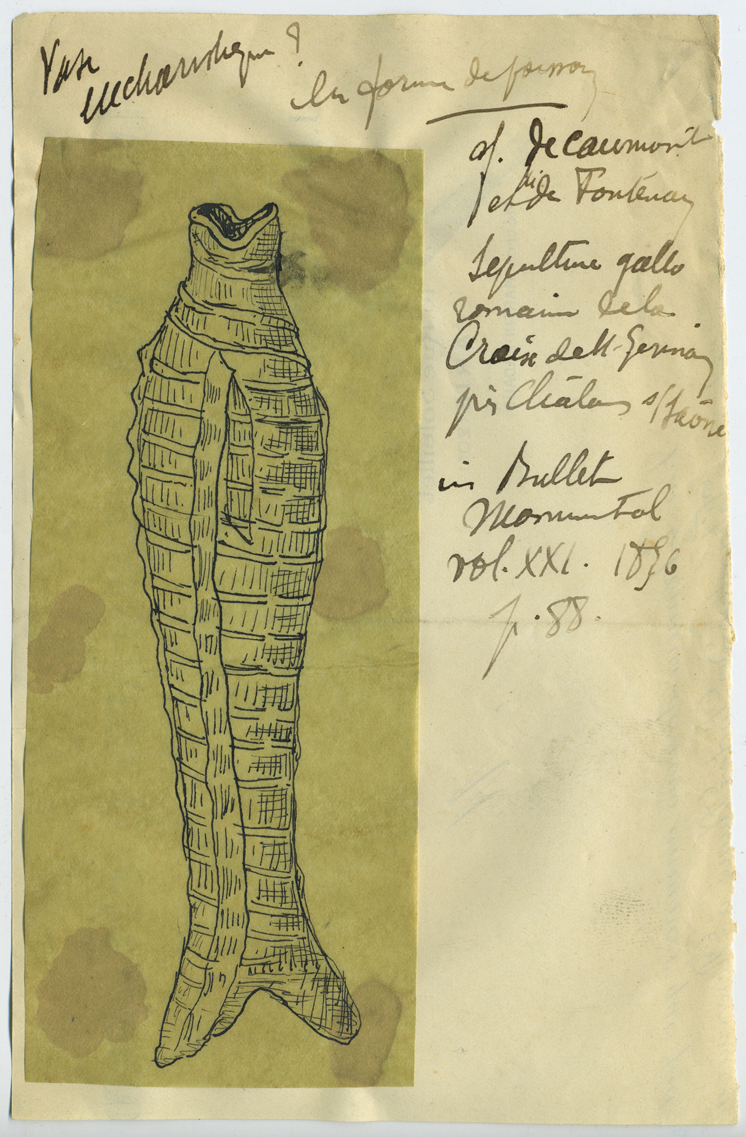 Vase
eucharistique ?
en forme de poisson
cf. de Caumont
et de Fontenay
Sépulture gallo
romaine de la
Croix de St-
près Châlons s/Saône
in Bullet
Monumental
vol. XXI. 1856
p. 88.